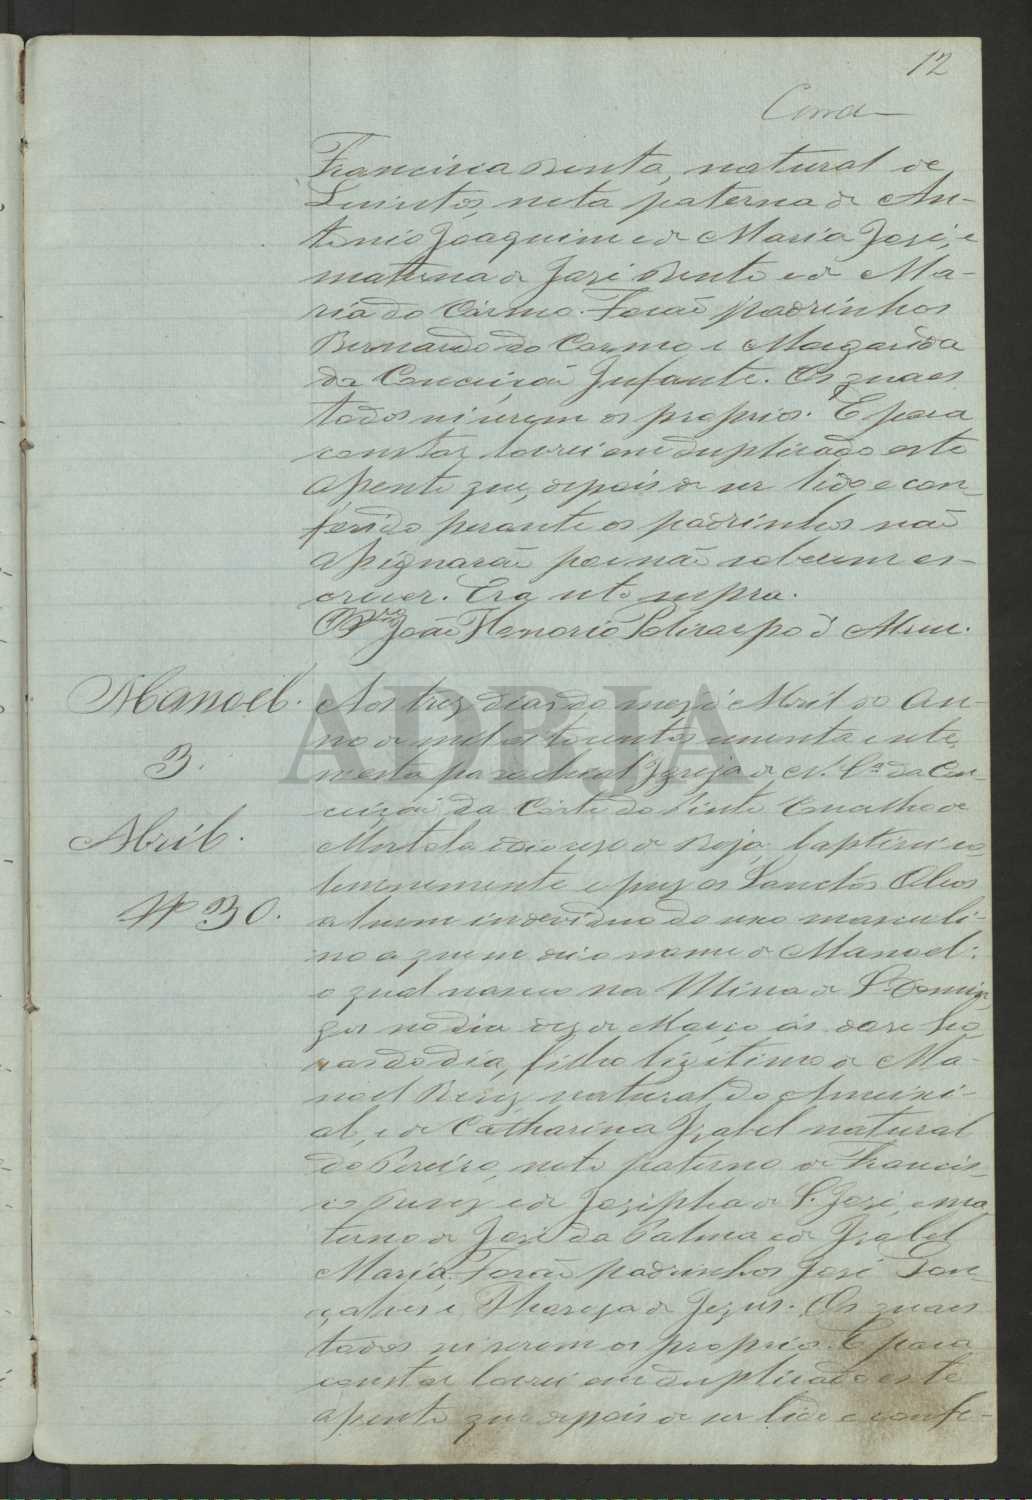 12
Francisca Benta, natural de
Quintos, neta paterna de An-
tonio Joaquim e de Maria José, e
materna de José Bento e de Ma-
ria do Carmo. Forão padrinhos
Bernardo do Carmo e Margarida
da Conceição Infante. Os quaes
todos sei serem os proprios. E para
constar lavrei em duplicado este
assento que, depois de ser lido e con-
ferido perante os padrinhos não
assignarão por não saberem es-
crever. Era ut supra.
O Pro. João Honorio Policarpo d'
Manoel.
3.
Abril.
Nº 30.
Aos trez dias do mez d'Abril do an-
no de mil oitocentos e sete
n'esta parochial Igreja de N. Sra. da Con-
ceição da Corte do Pinto Concelho de
Mertola e diocese de Beja, baptizei so-
lemnemente e puz os Sanctos Oleos
a hum individuo do sexo masculi-
no a quem dei o nome de Manoel:
o qual nasceo na Mina de S. Domin-
gos no dia dez de Março ás doze ho-
ras do dia, filho legitimo de Ma-
noel natural do Ameixi-
al, e de Catharina Izabel natural
do Pereiro, neto paterno de Francis-
co e de Josepha de S. José, e ma-
terno de José da Palma e de Izabel
Maria. Forão padrinhos José Gon-
çalves e Thereza de Jezus. Os quaes
todos sei serem os proprios. E para
constar lavrei em duplicado este
assento que depois de ser lido e confe-
ADBJA